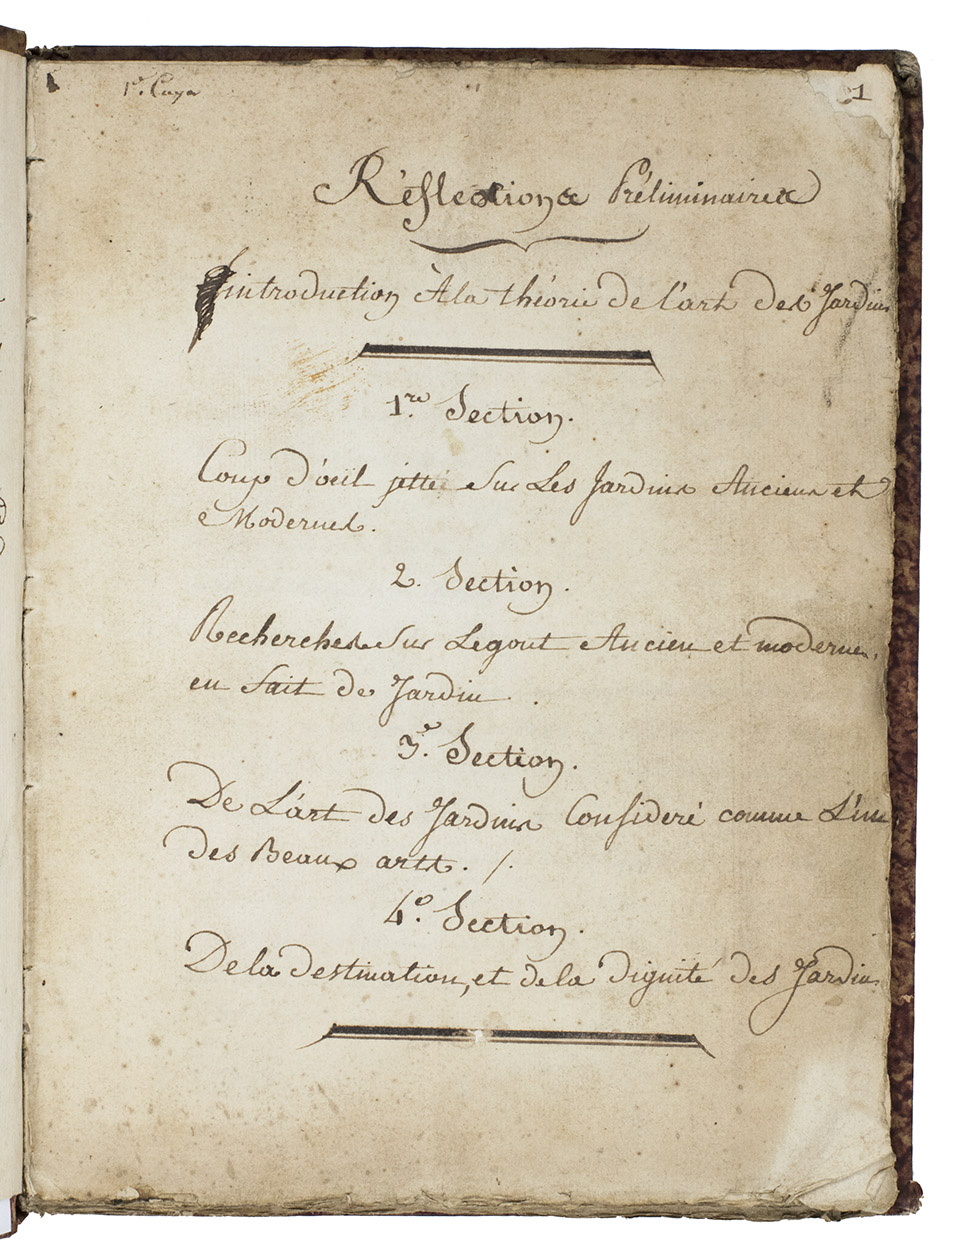 1
Réflexions Préliminaires
introduction À la théorie de l'art des Jardins
1.re Section.
Coup d'oeil jetté Sur Les Jardins Anciens et
Modernes.
2. Section.
Recherches Sur Legout Ancien et moderne.
en fait de Jardin.
3.e Section.
De L'art des Jardins Consideré comme L'un
des Beaux arts. /.
4.e Section.
Dela destination, et dela dignité des Jardins